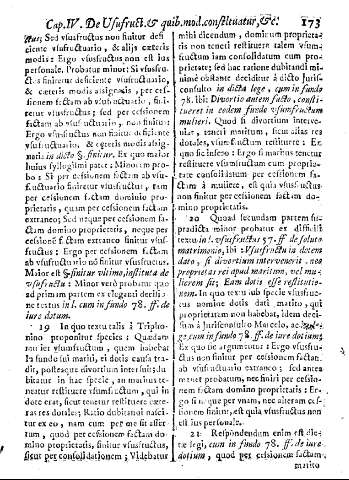 Cap. IV. De Vsufruct. & quib. mod. constituatur, &c. 173
ctus; Sed vsusfructus non finitur defi-
ciente vsufructuario, & alijs exteris
modis: Ergo vsusfructus non est ius
personale. Probatur minor: Si vsusfru-
ct. finiretur deficiente vsufructuario,
& cæteris modis assignatis, per ces-
sionem factam ab vsufructuario, fi-
niretur vsusfructus; sed per cessionem
factam ab vsufructuario, non finitur:
Ergo vsusfructus non finitur deficiente
vsufructuario, & cæteris modis assig-
natis in dicto §. finitur. Ex quo maior
huius syllogismi patet: Minorem pro-
bo: Si per cessionem factam ab vsu-
fructuario finiretur vsusfructus, tam
per cessionem factam domino pro-
prietatis, quam per cessionem factam
extraneo; Sed neque per cessionem fa-
ctam domino proprietatis, neque per
cessionē factam extraneo finitur vsus-
fructus: Ergo per cessionem factam
ab vsufructuario nō finitur vsusfructus.
Maior est §. finitur vltimo, instituta de
vsufructu: Minor verò probatur quo
ad primam partem ex eleganti decisio-
ne textus in l. cum in fundo 78. ff. de
iure dotum.
19 In quo textu talis à Tripho-
nino proponitur species: Quædam
mulier vsumfructum, quem habebat
in fundo sui mariti, ei dotis causa tra-
dit, posteaque divortium intersuit; du-
bitatur in hac specie, an maritus te-
neatur restituere vsumfructum, qui in
dote erat, sicut tenetur restituere cæte-
ras res dotales; Ratio dubitandi nasci-
tur ex eo, nam cum per me sit asser-
tum, quod per cessionem factam do-
mino proprietatis, finitur vsusfructus,
sicut per consolidationem; Videbatur
mihi dicendum, dominum proprieta-
ris non teneri restituere talem vsum-
fructum iam consolidatum cum pro-
prietate; sed hac ratione dubitandi mi-
nimè obstante deciditur à dicto Juris-
consulto in dicta lege, cum in fundo
78. ibi: Divortio autem facto, consti-
tueret in eodem fundo vsumfructum
mulieri. Quasi si divortium interve-
niatur, teneri maritum, sicut alias res
dotales, vsumfructum restituere: Ex
quo sic infero; Ergo si maritus tenetur
restituere vsumfructum cum proprie-
tate consolidatum per cessionem fac-
tam à muliere, est quia vsusfructus
non finitur per cessionem factam do-
mino proprietatis.
20 Quoad secundam partem su-
pradicta minor probatur ex difficili
textu in l. vsufructu 57. ff. de solut.
matrimonio, ibi: Vsufructu in dotem
dato, si divortium intervenerit, nec
proprietas rei apud maritum, vel mu-
lierem sit; Eam dotis esse restitutio-
nem. In quo textu sub specie vsusfruc-
tus nomine dotis dati marito, qui
proprietatem non habebat, idem deci-
sum à Jurisconsulto Marcelo, ac in le-
ge, cum in fundo 78. ff. de iure dotium;
Ex quo sic argumentor: Ergo vsusfru-
ctus non finitur per cessionem factam
ab vsufructuario extraneo; sed antea
manet in eodem robore, nec finiri per cessio-
nem factam domino proprietatis: Er-
go si ne que per vnam, nec alteram ces-
sionem finitur, est quia vsusfructus non
est ius personale.
21 Respondendum enim est dic-
tæ legi, cum in fundo 78. ff. de iure
dotium, quod per cessionem factam
marito